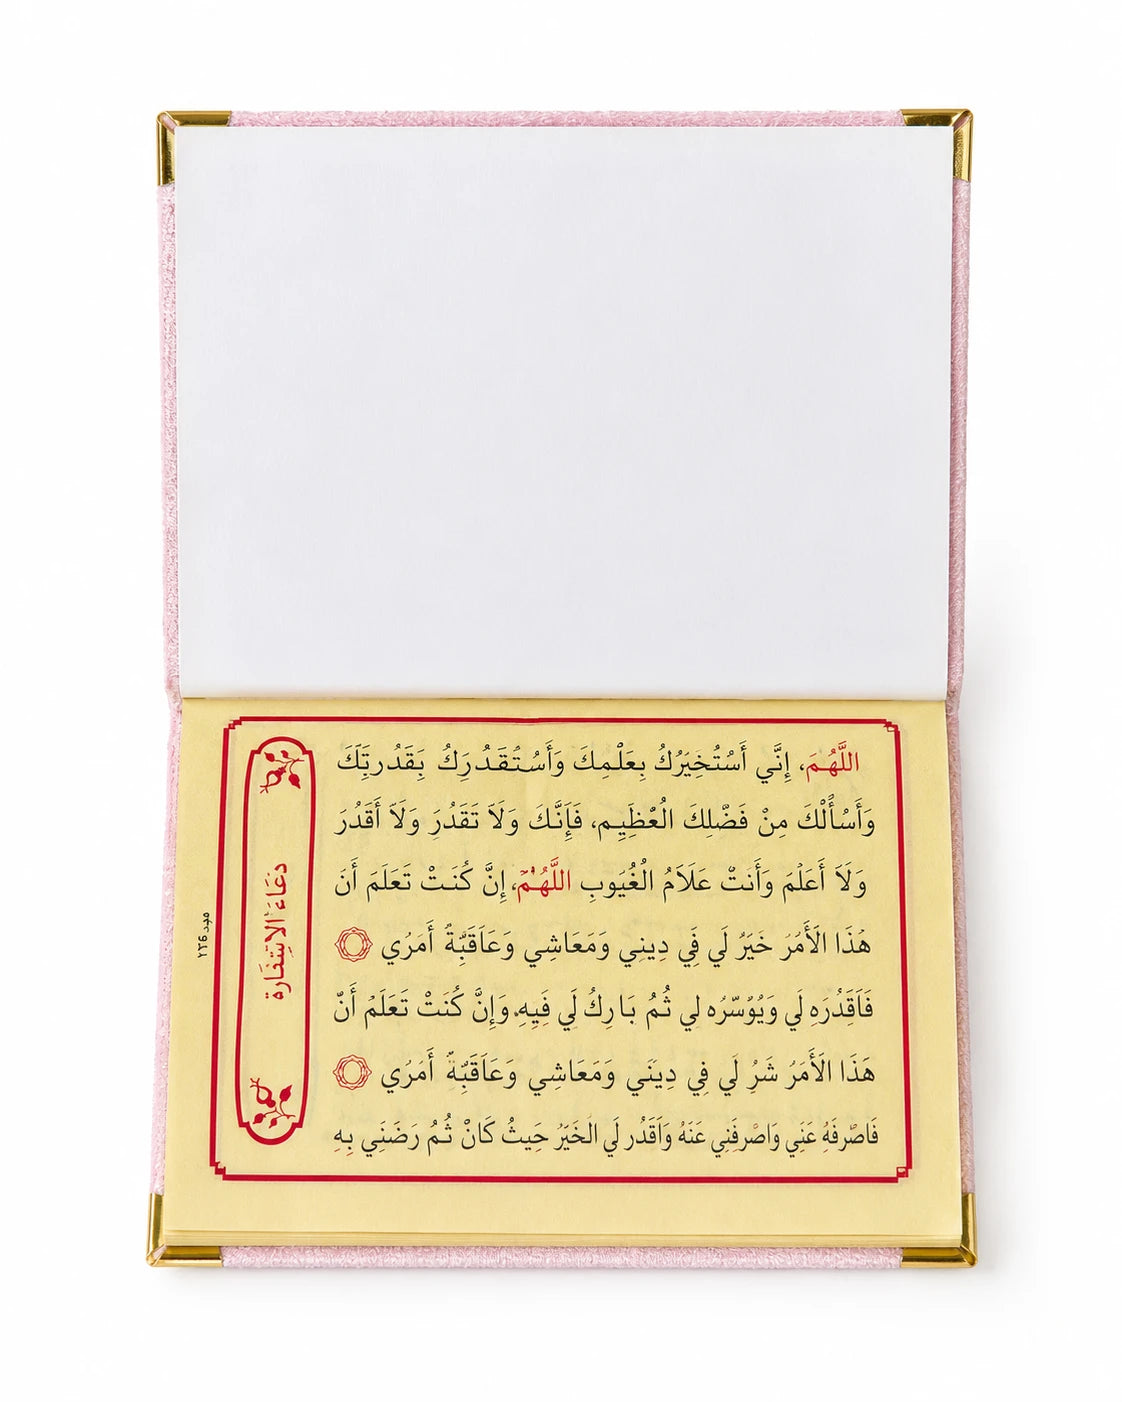 اللَّهُمَّ، إِنَّي أَسْتُخِيَرُكُ بِعَلْمِكَ وَأَسُتُقَدُرَكُ بِقَدُرتِّكَ
وَأَسُأَلْكَ مِنْ فَضْلِكَ الْعْظِيِم، فَإَنَّكَ وَلَآ تَقَدُرَ وَلَآ أَقَدُرَ
وَلَا أَعَلْمَ وَأَنتْ عَلَاَمُ الْغُيَوبِ اللَّهُمَّ، إِنَّ كُنَتْ تَعَلَمَ أَنَ
هَذَا الَأَمُرَ خَيَرُ لَي فَِي دِيننِي وَمَعَاشِي وَعَاَقَبَّةُ أَمَرُي
فَاَقِدُرَه لَي وَيُوُسّرُه لي ثُمُ بَارِكُ لَي فَيِهِ.وَإِنَّ كُنَتْ تَعَلَمَ أَنّ
هَذَا الَأَمَرُ شَرُ لَي فِي دِيَنَي وَمَعَاشِي وَعَاَقَبّةُ أَمَرُي
فَاصْرفَهُ عَنَِي وَاصْرفَنِي عَنَهُ وَاَقَدُر لَي الَخَيَرُ حَيثُ كَانْ ثُمُ رَضَنَِي بِهِ
دعَاءَ الاتِنفَارة
٢٢٦